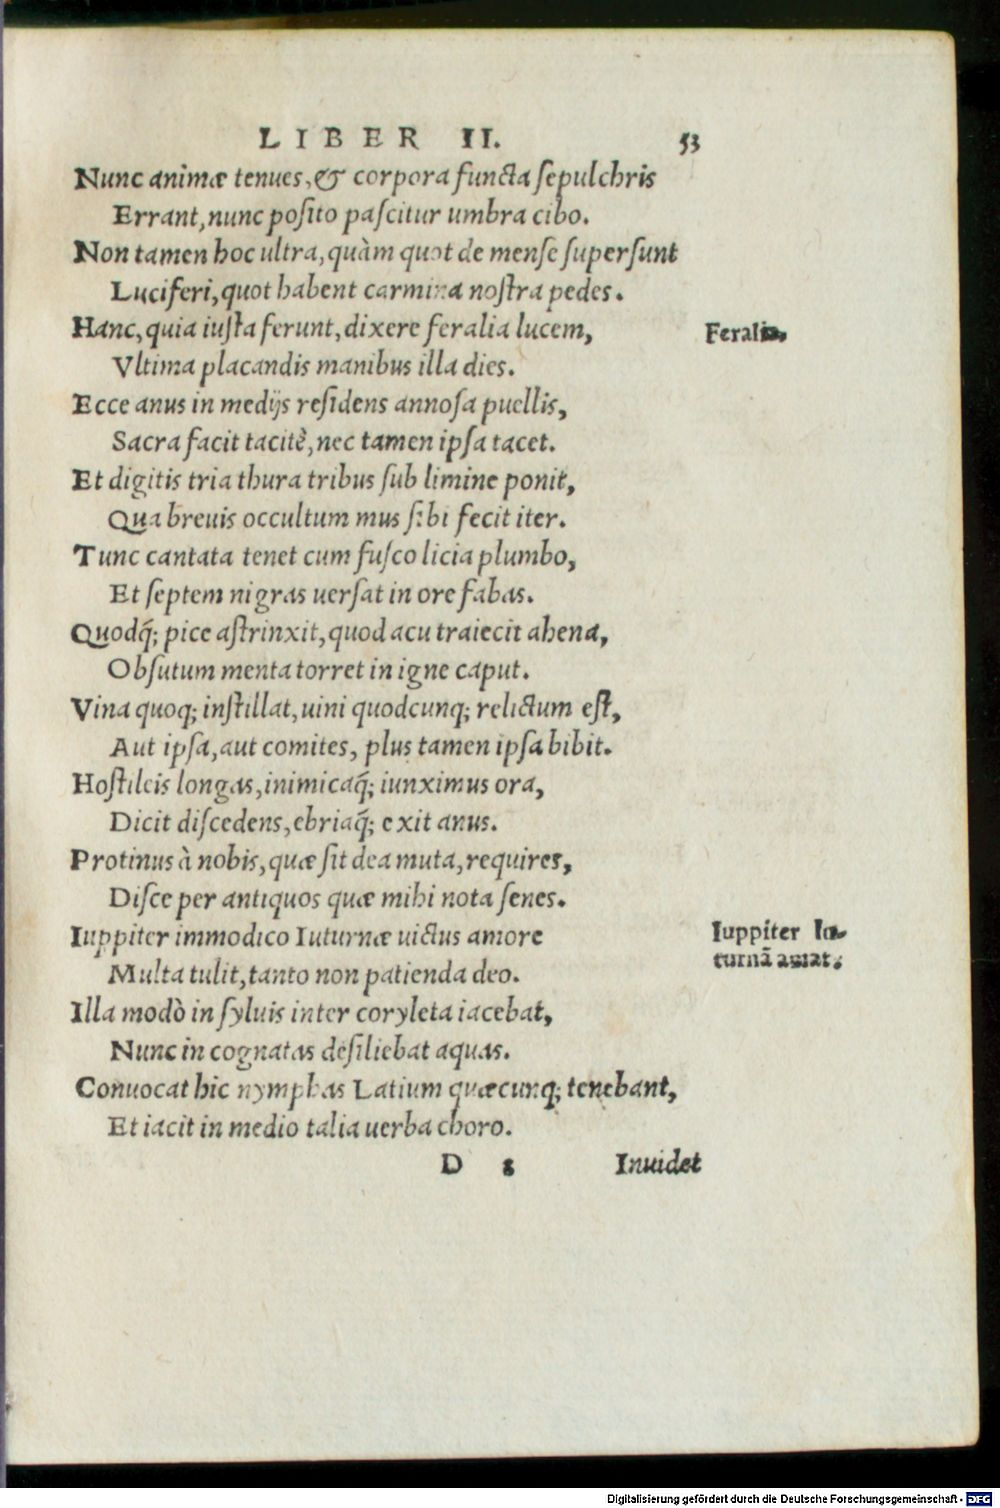 LIBER II. 53
Nunc animæ tenues, & corpora functa sepulchris
Errant, nunc posito pascitur umbra cibo.
Non tamen hoc ultra, quàm quot de mense supersunt
Luciferi, quot habent carmina nostra pedes.
Hanc, quia iusta ferunt, dixere feralia lucem,
Feralia.
Vltima placandis manibus illa dies.
Ecce anus in medijs residens annosa puellis,
Sacra facit tacitè, nec tamen ipsa tacet.
Et digitis tria thura tribus sub limine ponit,
Qua breuis occultum mus sibi fecit iter.
Tunc cantata tenet cum fusco licia plumbo,
Et septem nigras uersat in ore fabas.
Quodq́; pice astrinxit, quod acu traiecit ahena,
Obsutum menta torret in igne caput.
Vina quoq; instillat, uini quodcunq; relictum est,
Aut ipsa, aut comites, plus tamen ipsa bibit.
Hostileis longas, inimicaq́; iunximus ora,
Dicit discedens, ebriaq́; exit anus.
Protinus à nobis, quæ sit dea muta, requires,
Disce per antiquos quæ mihi nota senes.
Iuppiter immodico Iuturnæ uictus amore
Iuppiter Iu-
turnã amat.
Multa tulit, tanto non patienda deo.
Illa modò in syluis inter coryleta iacebat,
Nunc in cognatas desiliebat aquas.
Conuocat hic nymphas Latium quæcunq; tenebant,
Et iacit in medio talia uerba choro.
D 5 Inuidet
Digitalisierung gefördert durch die Deutsche Forschungsgemeinschaft - DFG